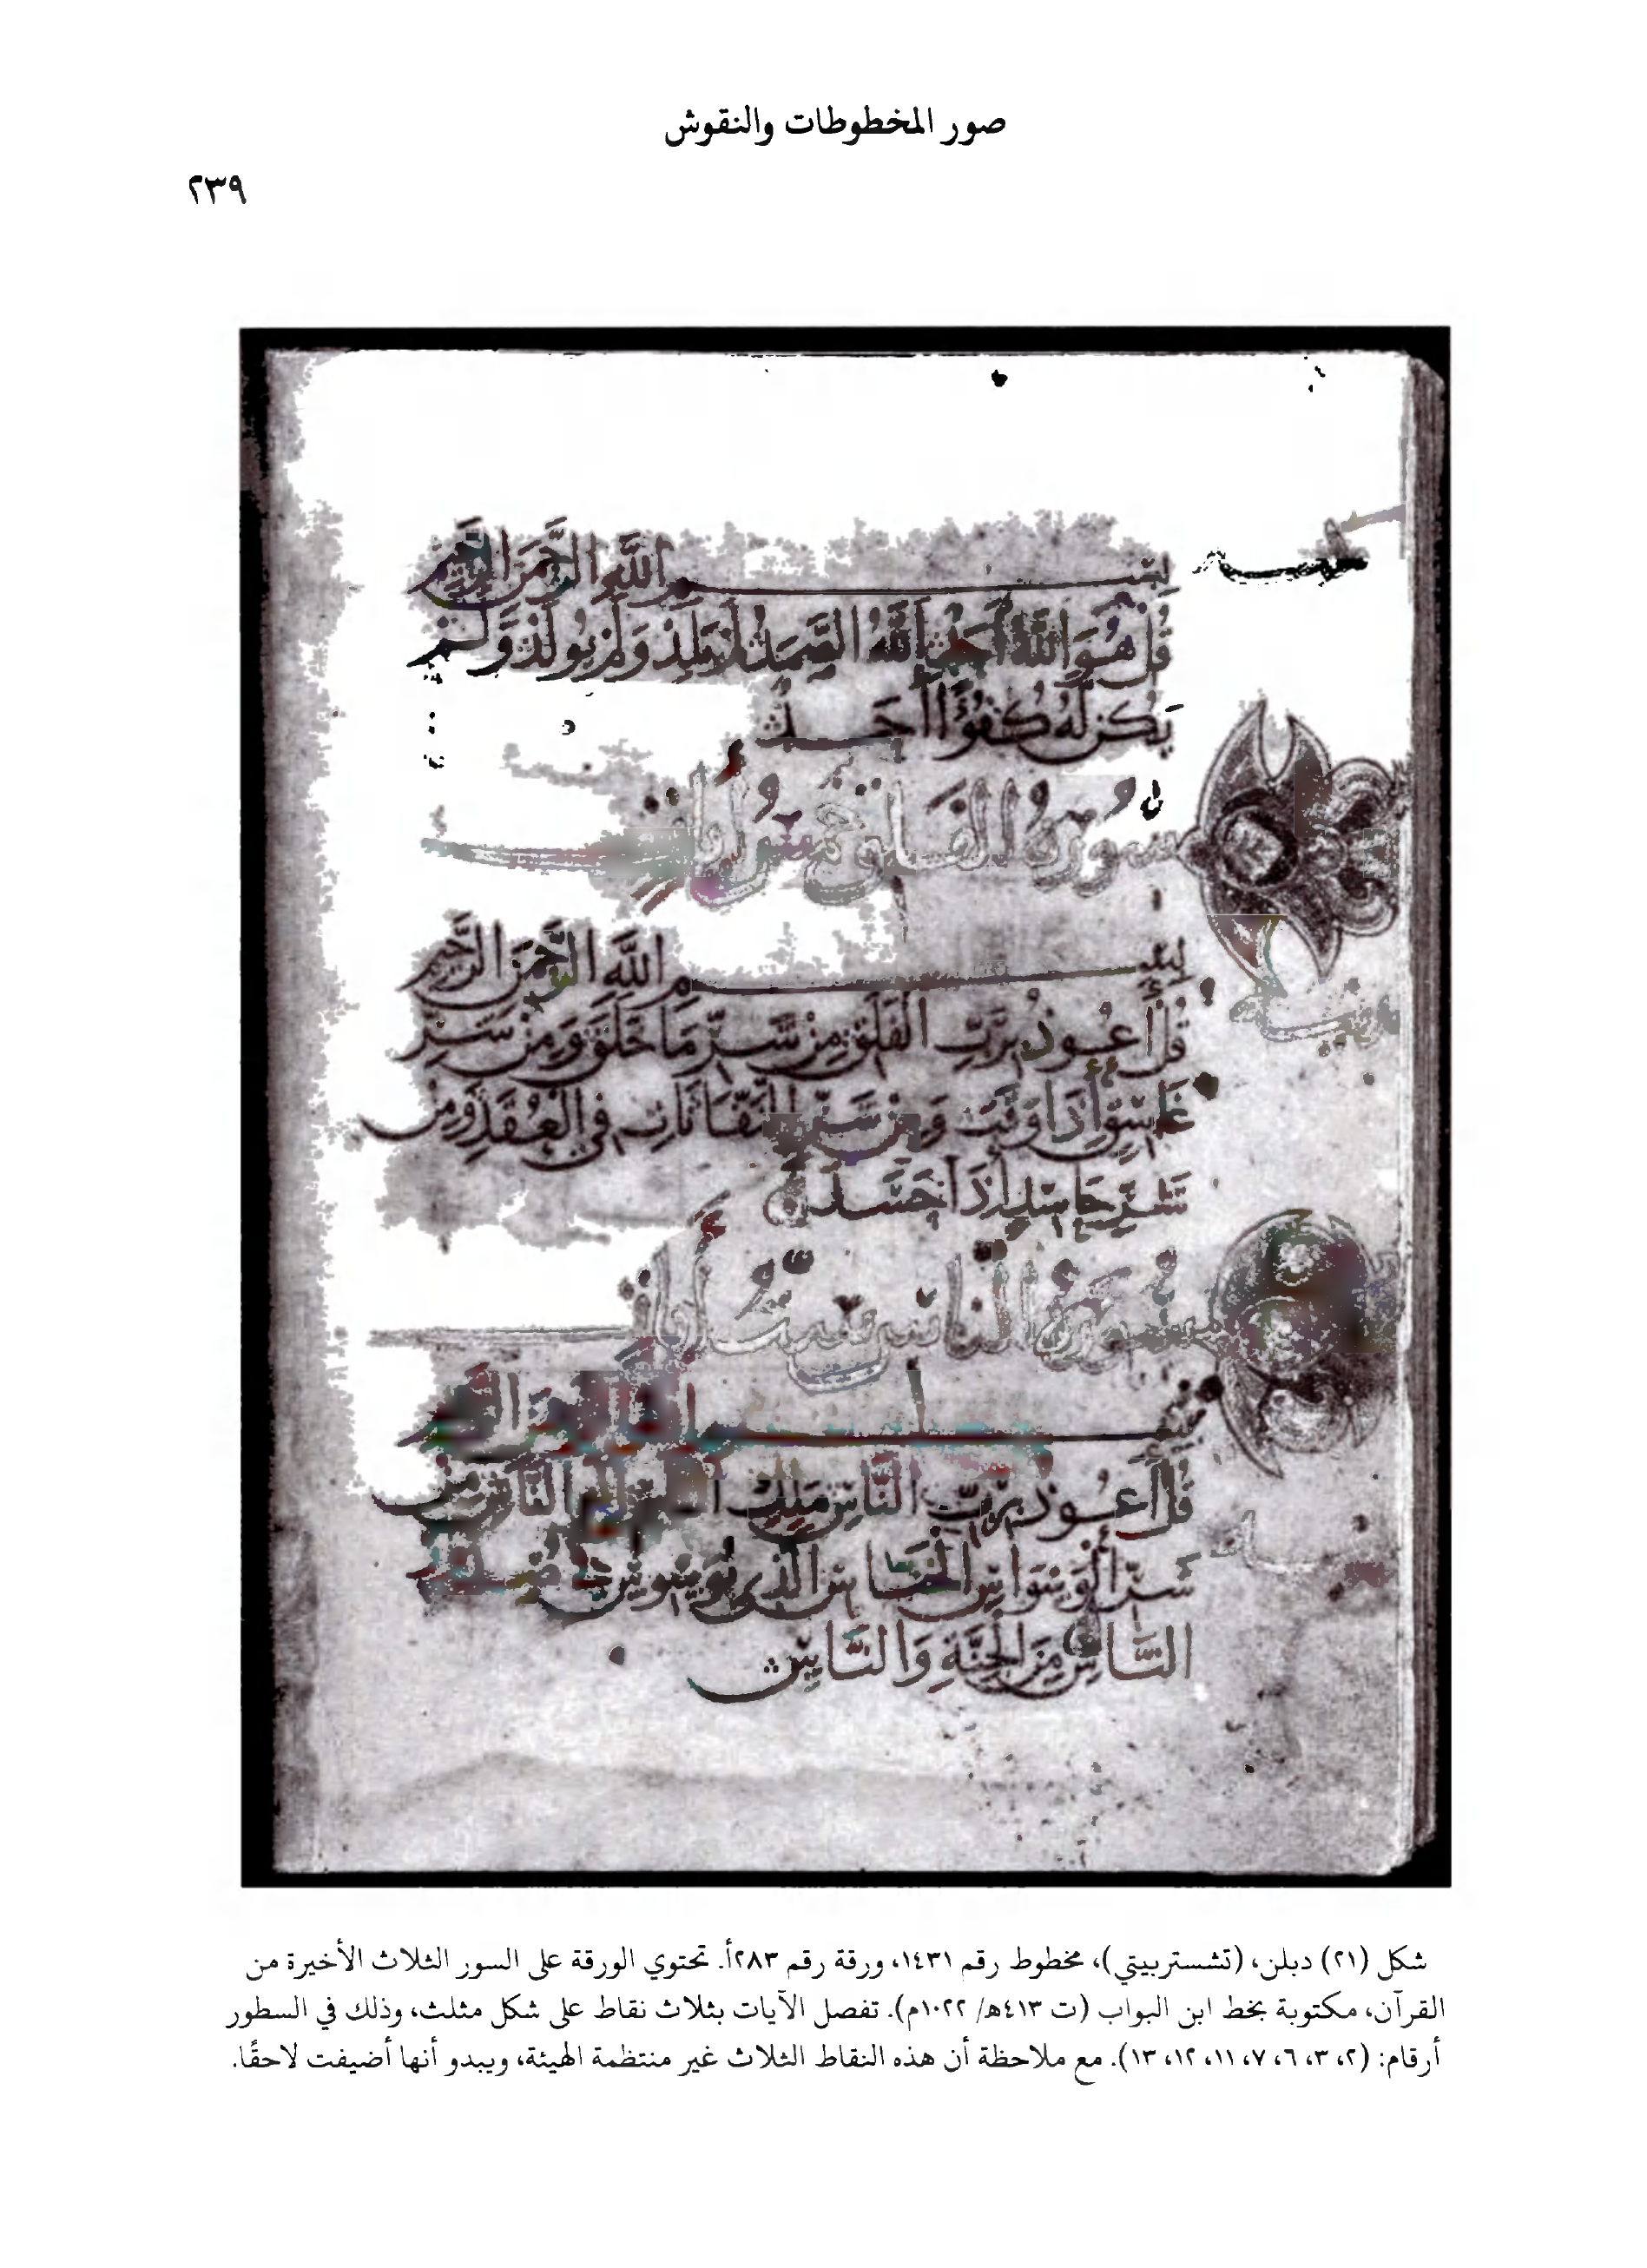 صور المخطوطات والنقوش
٢٣٩
بسم الله الرحمن الرحيم
قل هو الله أحد الله الصمد لم يلد ولم يولد ولم
يكن له كفؤا احد
سورة الفلق خمس آيات
بسم الله الرحمن الرحيم
قل أعوذ برب الفلق من شر ما خلق ومن شر
غاسق إذا وقب ومن شر النفاثات في العقد ومن
شر حاسد إذا حسد
سورة الناس ست آيات
بسم الله الرحمن الرحيم
قل أعوذ برب الناس ملك الناس إله الناس من
شر الوسواس الخناس الذي يوسوس في صدور
الناس من الجنة والناس
شكل (٢١) دبلن، (تشستربيتي)، مخطوط رقم ١٤٣١، ورقة رقم ٢٨٣أ. تحتوي الورقة على السور الثلاث الأخيرة من
القرآن، مكتوبة بخط ابن البواب (ت ٤١٣هـ/ ١٠٢٢م). تفصل الآيات بثلاث نقاط على شكل مثلث، وذلك في السطور
أرقام: (٢، ٣، ٦، ٧، ١١، ١٢، ١٣). مع ملاحظة أن هذه النقاط الثلاث غير منتظمة الهيئة، ويبدو أنها أضيفت لاحقًا.